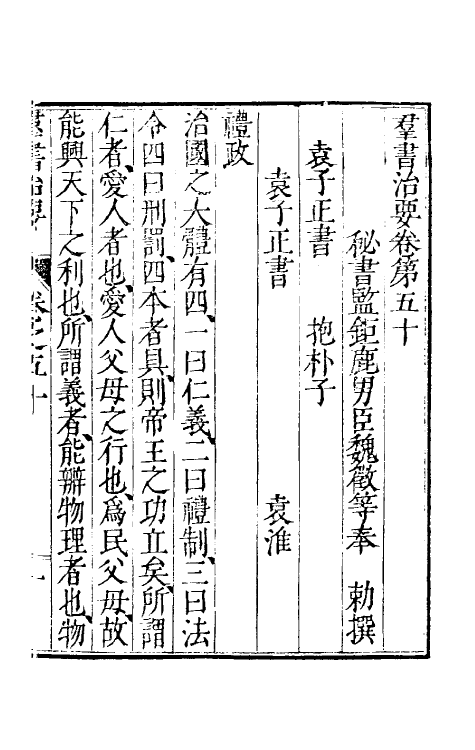 羣書治要卷第五十
秘書監鉅鹿男臣魏徵等奉　勅撰
袁子正書　　抱朴子
袁子正書　　袁淮
禮政
治國之大體有四、一曰仁義、二曰禮制、三曰法
令、四曰刑罰、四本者具、則帝王之功立矣、所謂
仁者、愛人者也、愛人父母之行也、爲民父母、故
能興天下之利也、所謂義者、能辧物理者也、物
羣書治要　卷之五十　一